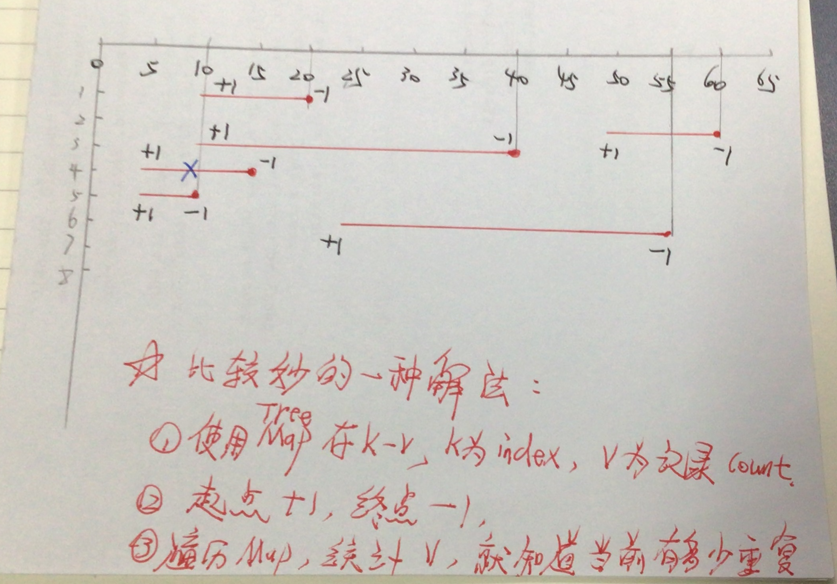 0 5 10 15 20 25 30 35 40 45 50 55 60 65
1 +1 -1
2
3 +1 -1 +1 -1
4 +1 X -1
5
6 +1 -1
7 +1 -1
8
☆ 比较妙的一种解法：
① 使用TreeMap 存K-V, K为index, V为记录count.
② 起点+1, 终点-1,
③ 遍历Map, 统计V, 就知道当前有多少重复